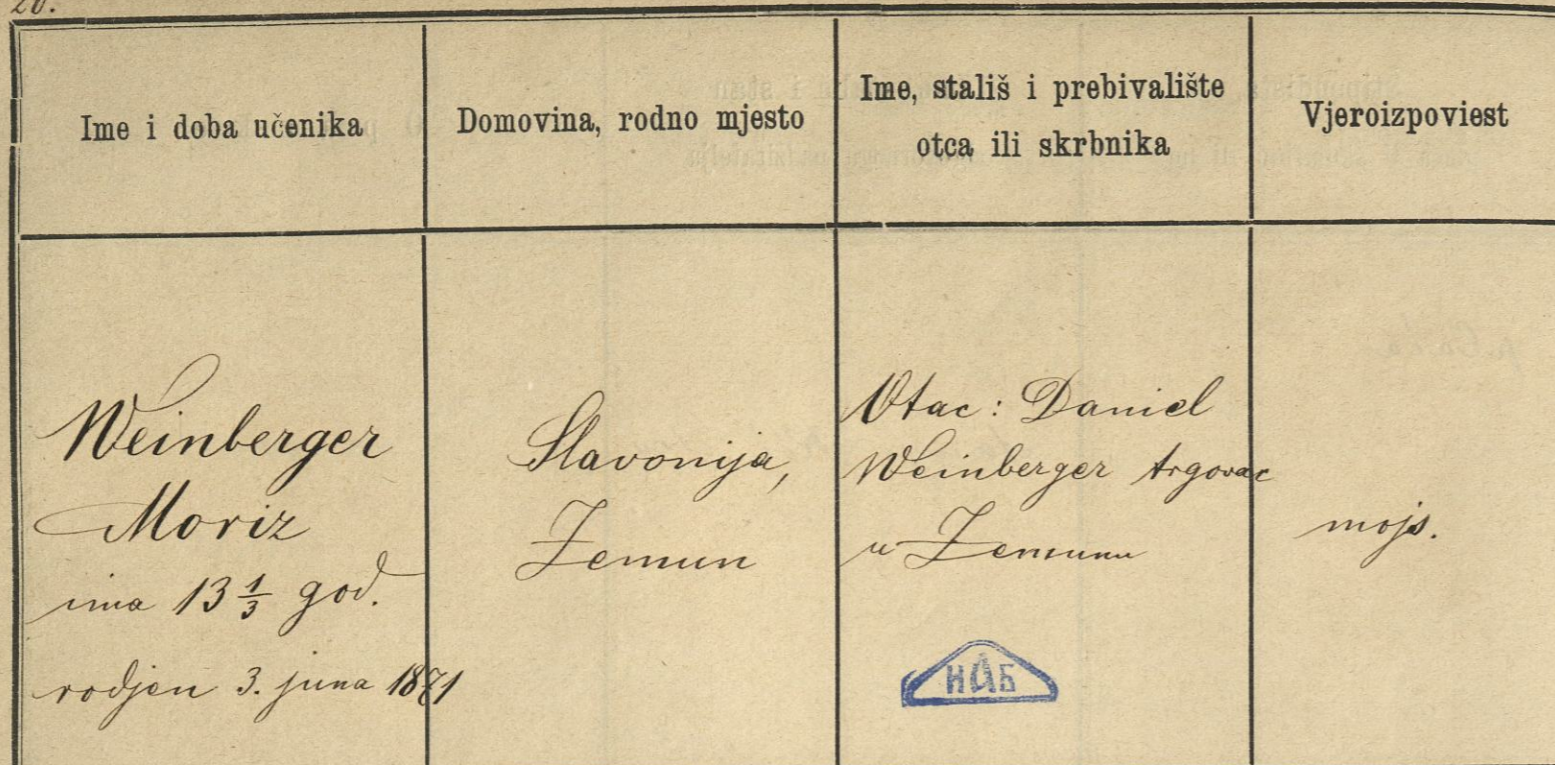 20.
Ime i doba učenika
Domovina, rodno mjesto
Ime, stališ i prebivalište
otca ili skrbnika
Vjeroizpoviest
Weinberger
Moriz
ima 13 1/3 god.
rodjen 3. juna 1871
Slavonija,
Zemun
Otac: Daniel
Weinberger trgovac
u Zemunu
mojs.
ИАБ